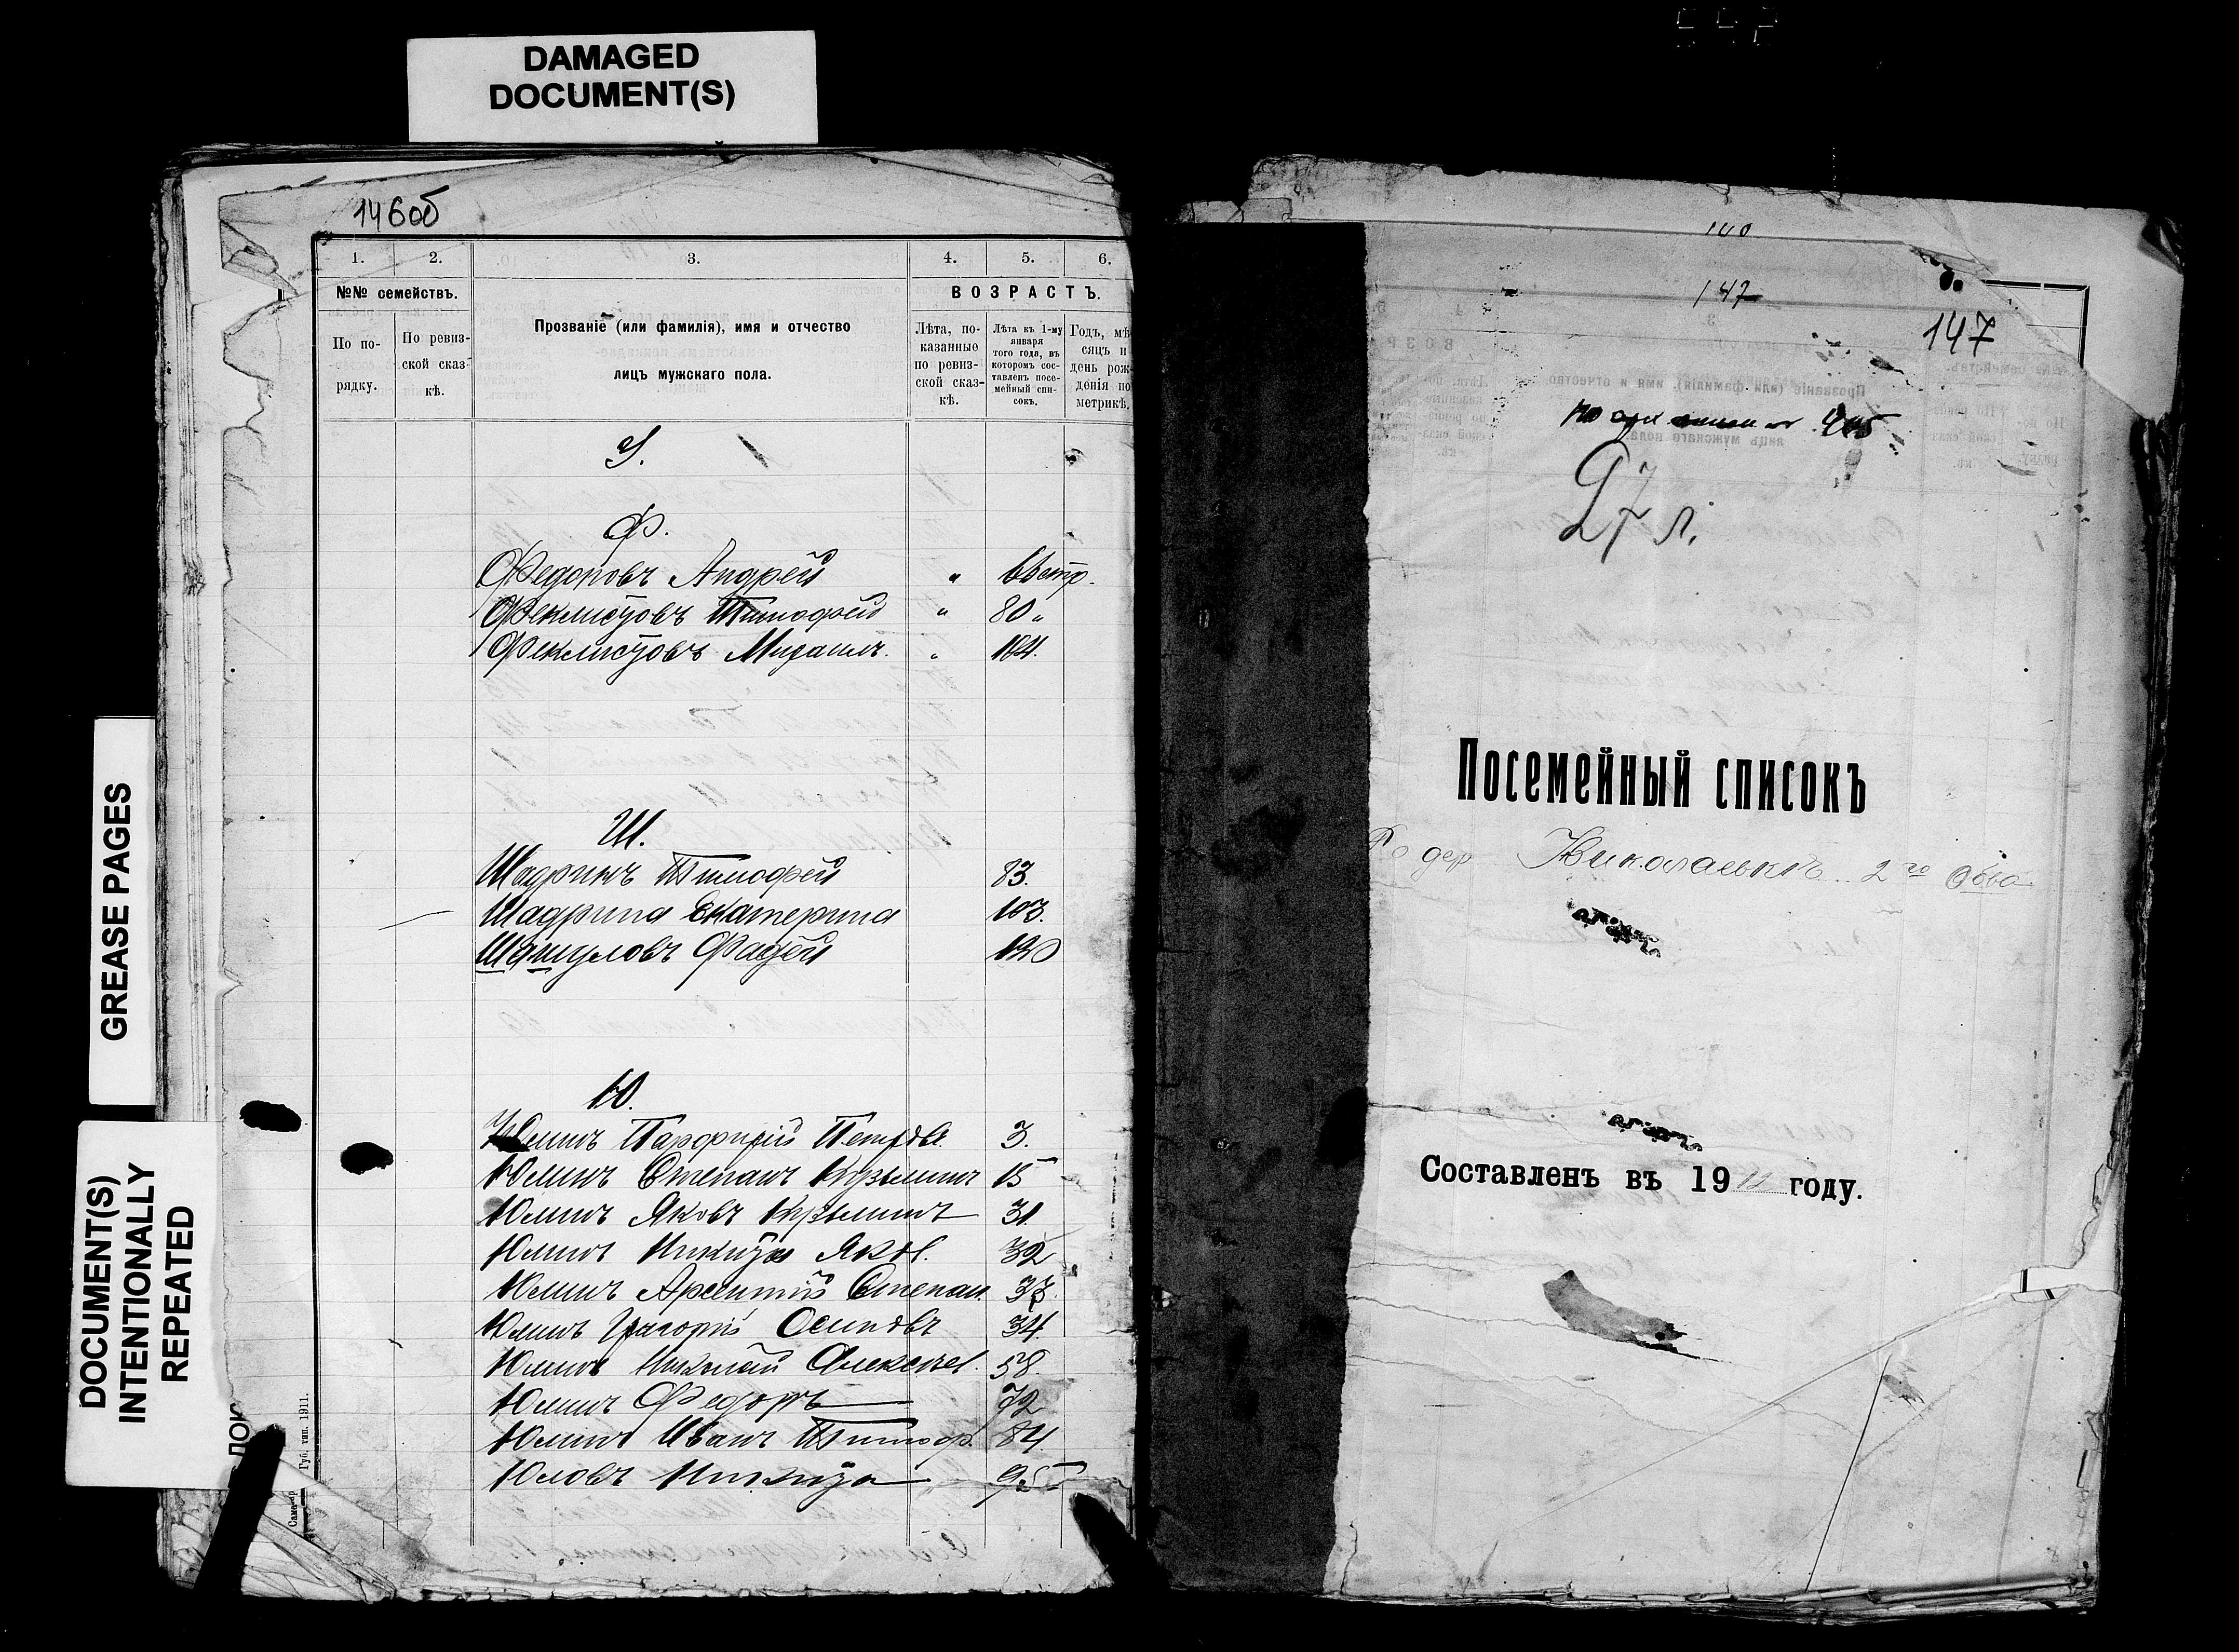 DAMAGED
DOCUMENT(S)
GREASE PAGES
DOCUMENT(S)
INTENTIONALLY
REPEATED
146об
1. 2. 3. 4. 5. 6.
№№ семействъ.
ВОЗРАСТЪ.
По по-
рядку.
По ревиз-
ской сказ-
кѣ.
Прозваніе (или фамилія), имя и отчество
лицъ мужскаго пола.
Лѣта, по-
казанные
по ревиз-
ской сказ-
кѣ.
Лѣта къ 1-му
января
того года, въ
которомъ сос-
тавленъ посе-
мейный спи-
сокъ.
Годъ, мѣ-
сяцъ и
день рож-
денія по
метрикѣ.
У.
Ф.
Федоровъ Андрей " 6 стр.
Феклистовъ Тимофей " 80 "
Феклистовъ Михаилъ " 164.
Ш.
Шадринъ Тимофей 83.
Шадрина Екатерина 103.
Шашуловъ Фадей 120
Ю.
Юлинъ Парфирій Петровъ 3.
Юлинъ Степанъ Кузьминъ 15
Юлинъ Яковъ Кузьминъ 31.
Юлинъ Никита Яковл. 32
Юлинъ Арсентій Степан. 33.
Юлинъ Григорій Осиповъ 34.
Юлинъ Николай Алексѣев. 58.
Юлинъ Федоръ 72
Юлинъ Иванъ Тимоф. 84.
Юловъ Никита 95
Губ. тип. 1911.
147
147
27 л.
Посемейный списокъ
По дер Николаевкѣ 2го Общ
Составленъ въ 1912 году.